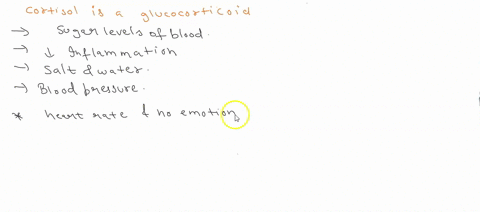 Cortisol is a glucocorticoid
→ Suger levels of blood.
→ ↓ Inflammation
→ Salt & water.
→ Blood pressure.
* heart rate & no emotion